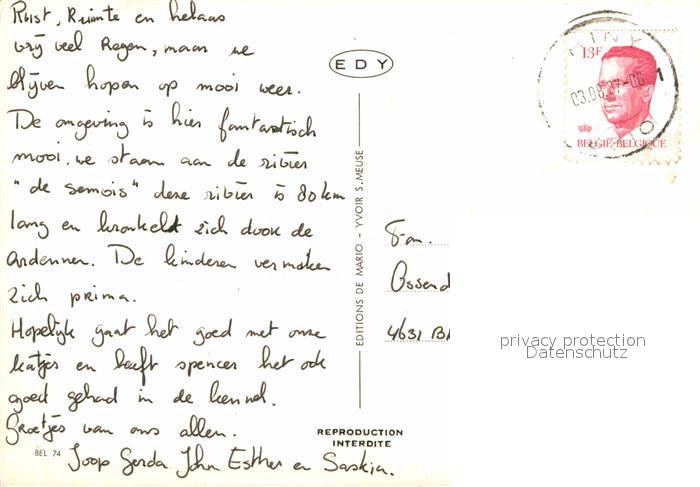 Rust, Ruimte en helaas
vrij veel Regen, maar we
blijven hopen op mooi weer.
De omgeving is hier fantastisch
mooi. we staan aan de rivier
"de Semois" deze rivier is 80 km
lang en kronkelt zich door de
Ardennen. De kinderen vermaken
zich prima.
Hopelijk gaat het goed met onze
katjes en heeft spencer het ook
goed gehad in de kennel.
Groetjes van ons allen.
Joop Gerda John Esther en Saskia.
BEL 74
EDY
EDITIONS DE MARIO - YVOIR S. MEUSE
REPRODUCTION
INTERDITE
13F
03.08.87
1
BELGIË-BELGIQUE
Fam.
Ossend
4631 B
privacy protection
Datenschutz